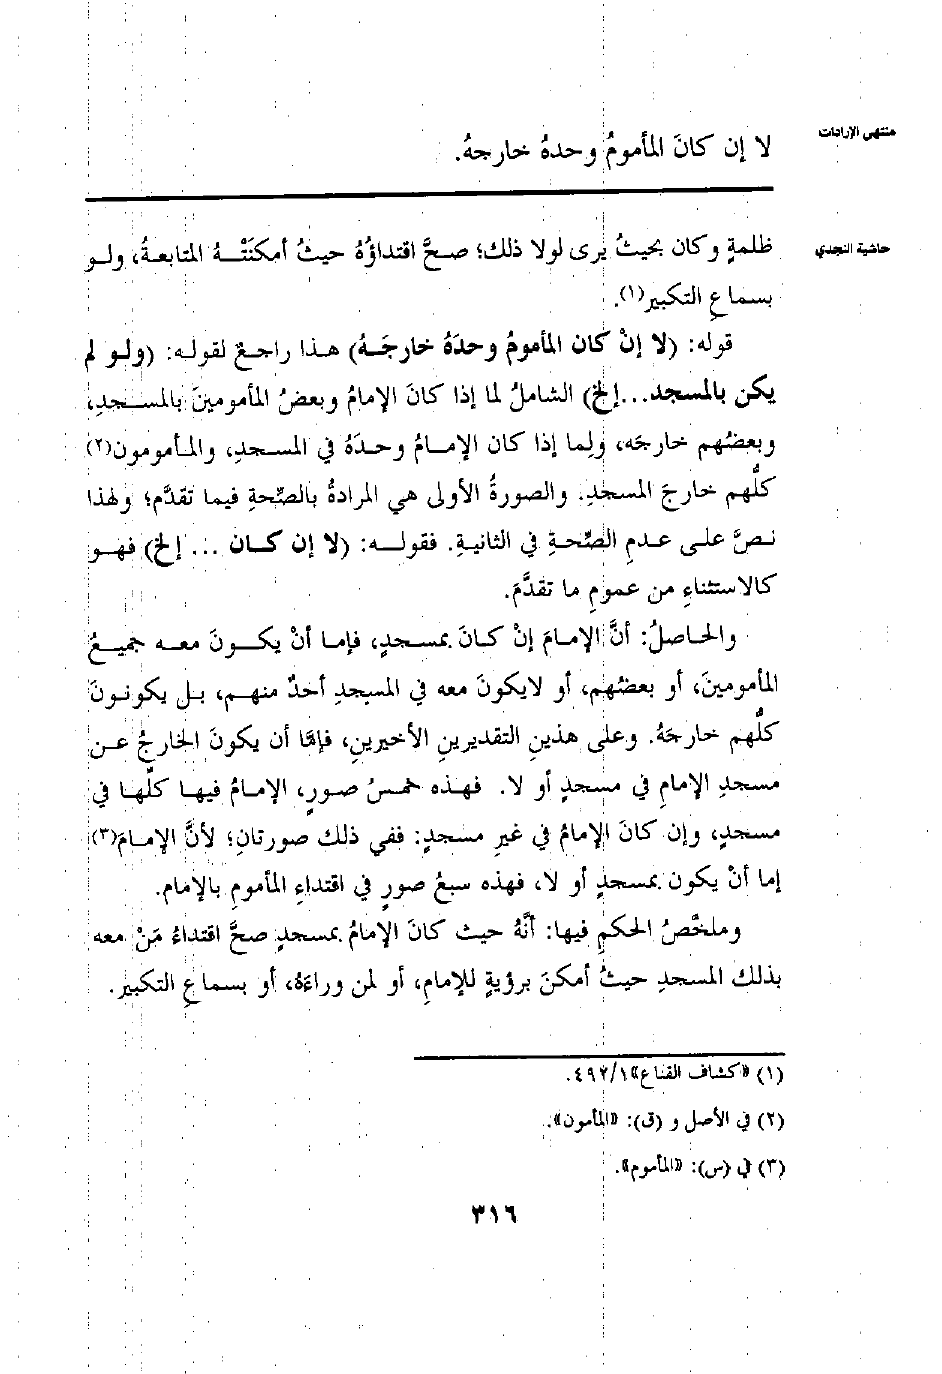 منتهى الإرادات
لا إن كانَ المأمومُ وحدهُ خارجهُ.
حاشية النجدي
ظلمةٍ وكان بحيثُ يرى لولا ذلك؛ صحَّ اقتداؤُهُ حيثُ أمكنَتْهُ المتابعةُ، ولو
بسماعِ التكبير(١).
قوله: (لا إنْ كان المأمومُ وحدَهُ خارجَهُ) هذا راجعٌ لقوله: (ولو لم
يكن بالمسجد...إلخ) الشاملُ لما إذا كانَ الإمامُ وبعضُ المأمومينَ بالمسجدِ،
وبعضُهم خارجَه، ولِما إذا كان الإمامُ وحدَهُ في المسجدِ، والمأمومون(٢)
كلُّهم خارجَ المسجدِ. والصورةُ الأولى هي المرادةُ بالصِّحةِ فيما تقدَّم؛ ولهذا
نصَّ على عدمِ الصِّحةِ في الثانيةِ. فقوله: (لا إن كان ... إلخ) فهو
كالاستثناءِ من عمومِ ما تقدَّمَ.
والحاصلُ: أنَّ الإمامَ إنْ كانَ بمسجدٍ، فإما أنْ يكونَ معه جميعُ
المأمومينَ، أو بعضُهم، أو لايكونَ معه في المسجدِ أحدٌ منهم، بل يكونونَ
كلُّهم خارجَهُ. وعلى هذينِ التقديرينِ الأخيرينِ، فإمَّا أن يكونَ الخارجُ عن
مسجدِ الإمامِ في مسجدٍ أو لا. فهذه خمسُ صورٍ، الإمامُ فيها كلِّها في
مسجدٍ، وإن كانَ الإمامُ في غيرِ مسجدٍ: ففي ذلك صورتانِ؛ لأنَّ الإمامَ(٣)
إما أنْ يكون بمسجدٍ أو لا، فهذه سبعُ صورٍ في اقتداءِ المأمومِ بالإمام.
وملخَّصُ الحكمِ فيها: أنَّهُ حيث كانَ الإمامُ بمسجدٍ صحَّ اقتداءُ مَنْ معه
بذلك المسجدِ حيثُ أمكنَ برؤيةٍ للإمامِ، أو لمن وراءَهُ، أو بسماعِ التكبير.
(١) «كشاف القناع» ٤٩٢/١.
(٢) في الأصل و (ق): «المأمون».
(٣) في (س): «المأموم».
٣١٦